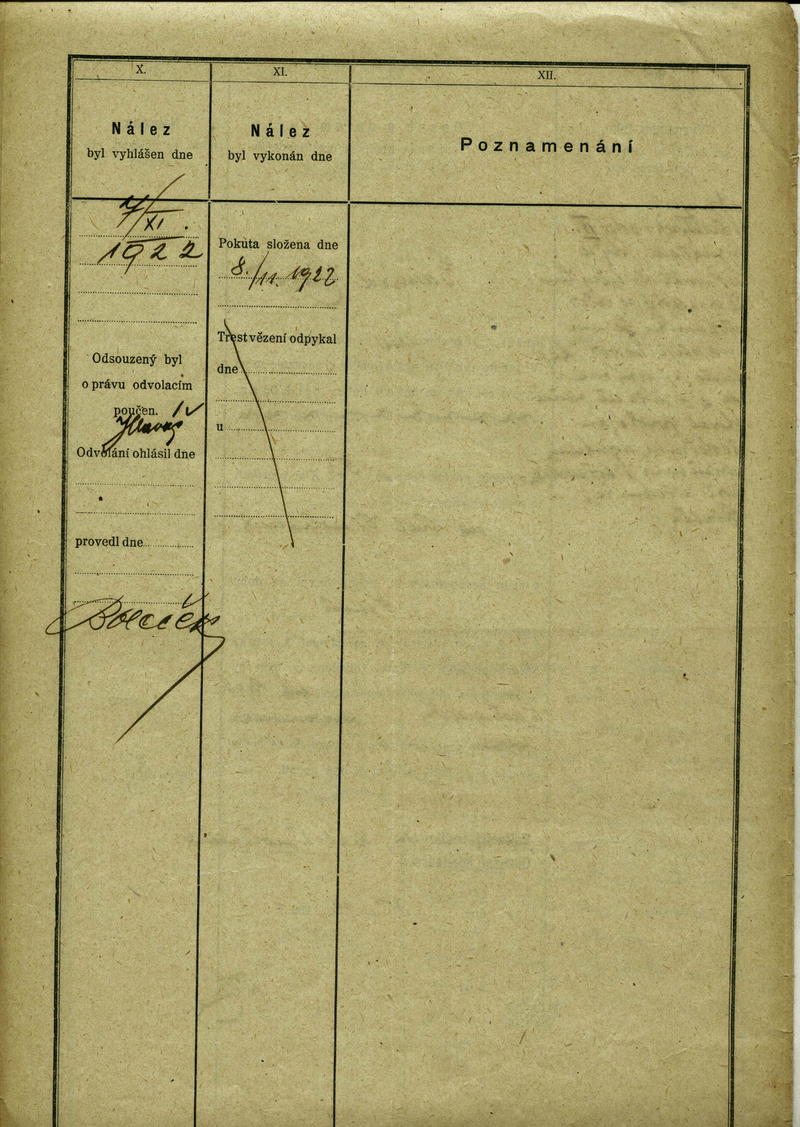 X.
Nález
byl vyhlášen dne
7/XI.
1922
Odsouzený byl
o právu odvolacím
poučen.
Odvolání ohlásil dne
provedl dne
XI.
Nález
byl vykonán dne
Pokuta složena dne
8./11. 1922
Trest vězení odpykal
dne
u
XII.
Poznamenání